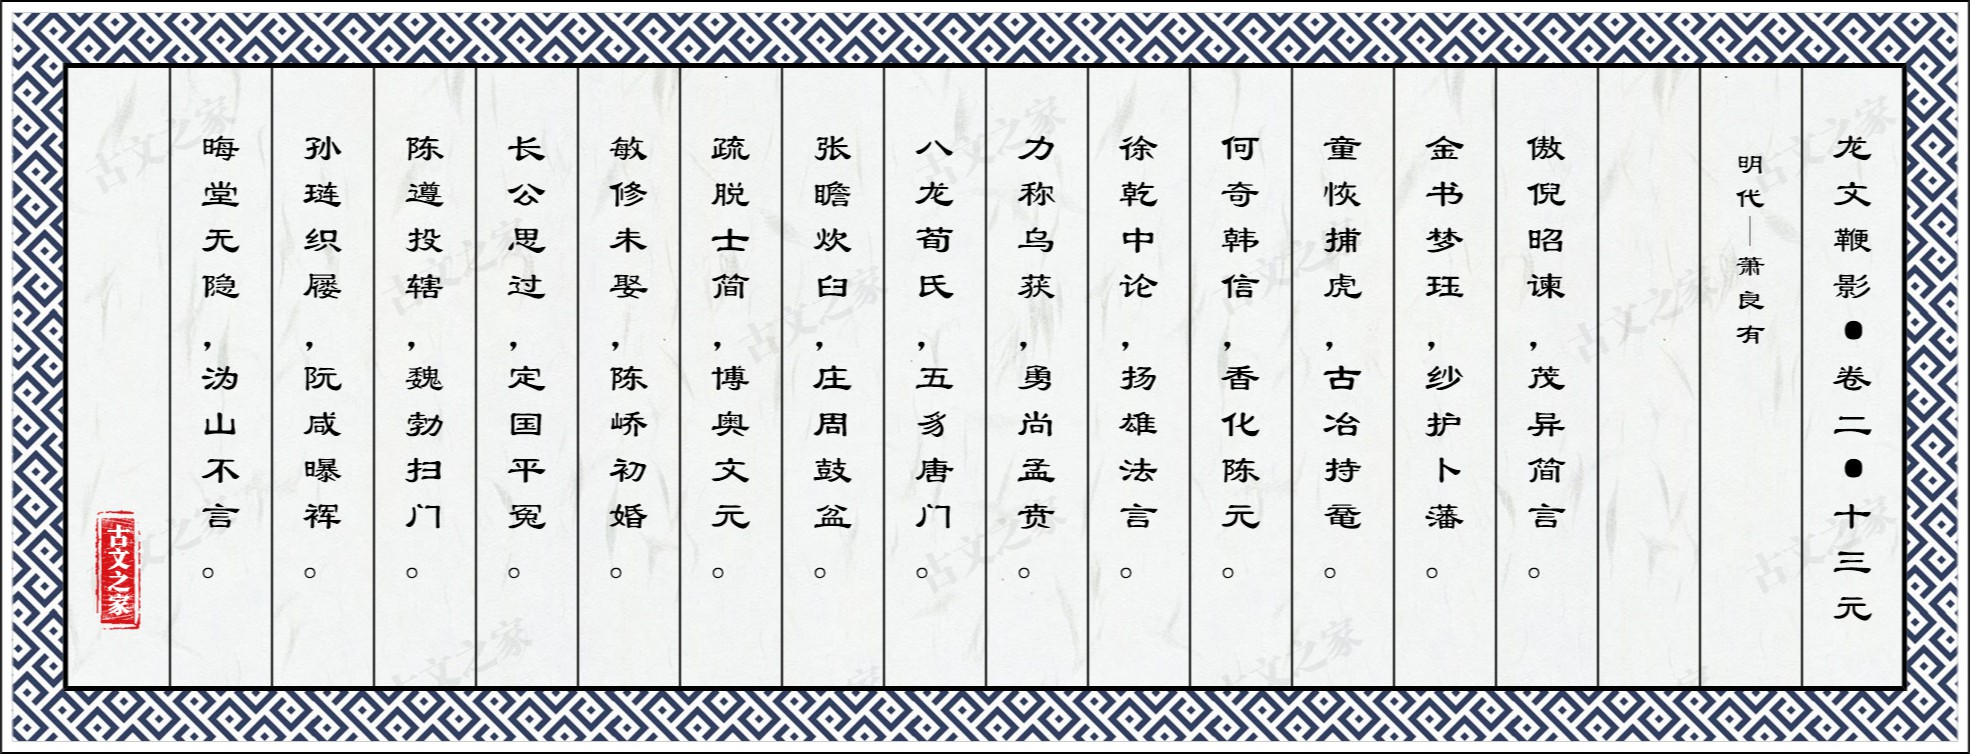 龙文鞭影●卷二●十三元
明代—萧良有
傲倪昭谏，茂异简言。
金书梦珏，纱护卜藩。
童恢捕虎，古冶持鼋。
何奇韩信，香化陈元。
徐乾中论，扬雄法言。
力称乌获，勇尚孟贲。
八龙荀氏，五豸唐门。
张瞻炊臼，庄周鼓盆。
疏脱士简，博奥文元。
敏修未娶，陈峤初婚。
长公思过，定国平冤。
陈遵投辖，魏勃扫门。
孙琏织屦，阮咸曝裈。
晦堂无隐，沩山不言。
古文之家